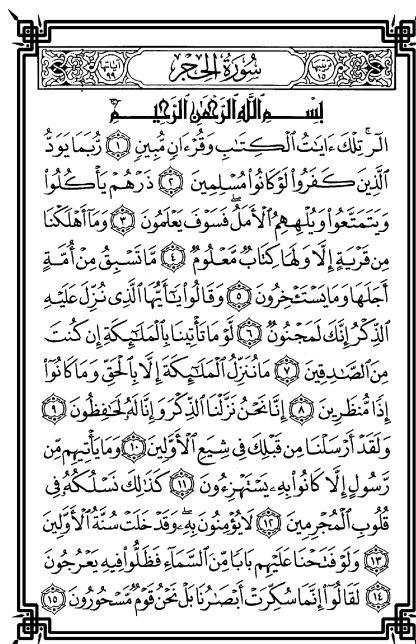 ترتيبها ١٥ سُورَةُ الْحِجْرِ آياتها ٩٩
بِسْمِ اللَّهِ الرَّحْمَٰنِ الرَّحِيمِ
الٓر ۚ تِلْكَ ءَايَٰتُ الْكِتَٰبِ وَقُرْءَانٍ مُّبِينٍ ١ رُّبَمَا يَوَدُّ
الَّذِينَ كَفَرُوا۟ لَوْ كَانُوا۟ مُسْلِمِينَ ٢ ذَرْهُمْ يَأْكُلُوا۟
وَيَتَمَتَّعُوا۟ وَيُلْهِهِمُ الْأَمَلُ ۖ فَسَوْفَ يَعْلَمُونَ ٣ وَمَآ أَهْلَكْنَا
مِن قَرْيَةٍ إِلَّا وَلَهَا كِتَابٌ مَّعْلُومٌ ٤ مَّا تَسْبِقُ مِنْ أُمَّةٍ
أَجَلَهَا وَمَا يَسْتَـْٔخِرُونَ ٥ وَقَالُوا۟ يَٰٓأَيُّهَا الَّذِى نُزِّلَ عَلَيْهِ
الذِّكْرُ إِنَّكَ لَمَجْنُونٌ ٦ لَّوْ مَا تَأْتِينَا بِالْمَلَٰٓئِكَةِ إِن كُنتَ
مِنَ الصَّٰدِقِينَ ٧ مَا نُنَزِّلُ الْمَلَٰٓئِكَةَ إِلَّا بِالْحَقِّ وَمَا كَانُوٓا۟
إِذًا مُّنظَرِينَ ٨ إِنَّا نَحْنُ نَزَّلْنَا الذِّكْرَ وَإِنَّا لَهُۥ لَحَٰفِظُونَ ٩
وَلَقَدْ أَرْسَلْنَا مِن قَبْلِكَ فِى شِيَعِ الْأَوَّلِينَ ١٠ وَمَا يَأْتِيهِم مِّن
رَّسُولٍ إِلَّا كَانُوا۟ بِهِۦ يَسْتَهْزِءُونَ ١١ كَذَٰلِكَ نَسْلُكُهُۥ فِى
قُلُوبِ الْمُجْرِمِينَ ١٢ لَا يُؤْمِنُونَ بِهِۦ ۖ وَقَدْ خَلَتْ سُنَّةُ الْأَوَّلِينَ
١٣ وَلَوْ فَتَحْنَا عَلَيْهِم بَابًا مِّنَ السَّمَآءِ فَظَلُّوا۟ فِيهِ يَعْرُجُونَ
١٤ لَقَالُوٓا۟ إِنَّمَا سُكِّرَتْ أَبْصَٰرُنَا بَلْ نَحْنُ قَوْمٌ مَّسْحُورُونَ ١٥